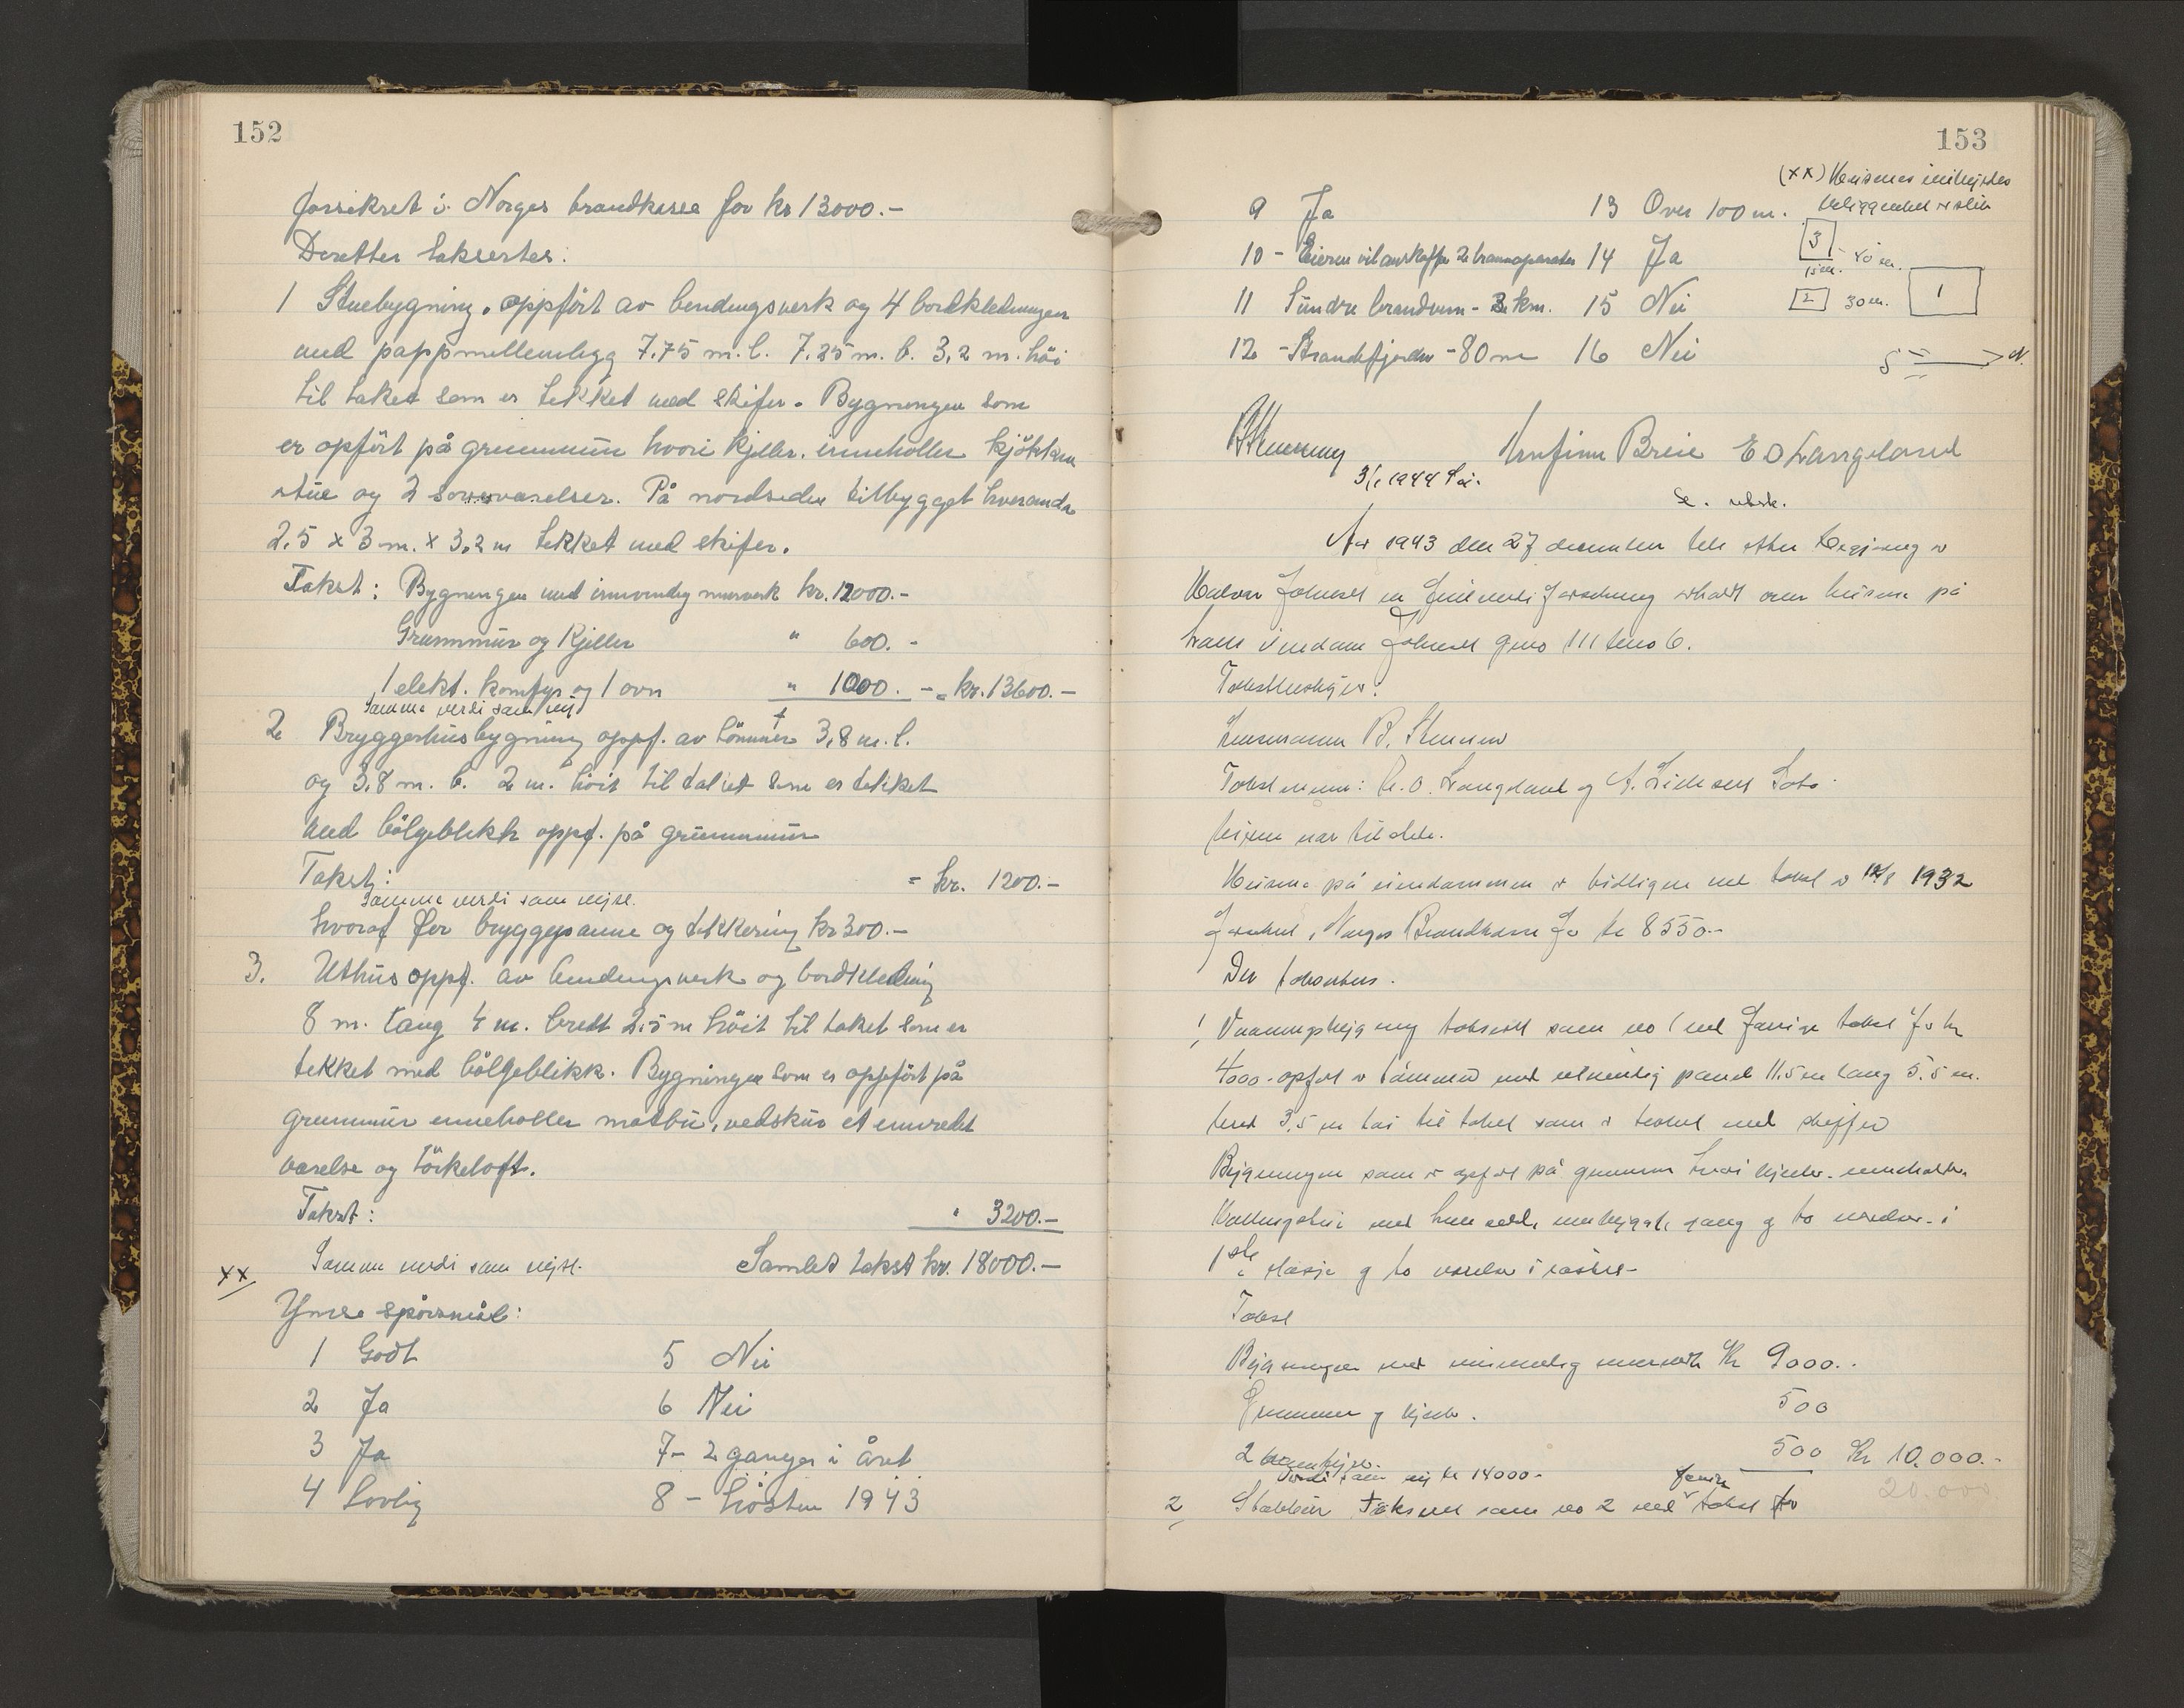 152
forsikret i Norges brandkasse for kr 13000.-
Deretter taksertes:
1 Stuebygning, oppfört av bendingsverk og 4 bordkledninger
med pappmellemlegg 7.75 m. l. 7.25 m. b. 3,2 m. höi
til taket som er tekket med skifer. Bygningen som
er opfört på grunnmur hvori kjeller, inneholler kjökken
stue og 2 soveværelser. På nordsiden tilbygget veranda
2.5 x 3 m. x 3,2 m tekket med skifer.
Takst: Bygningen med innvendig murverk kr. 12000.-
Grunnmur og Kjeller " 600.-
1 elekt. komfyr og 1 ovn " 1000.- = kr. 13600.-
Samme verdi som nej
2 Bryggerhusbygning oppf. av tömmer 3,8 m. l.
og 3,8 m. b. 2 m. höit til taket som er tekket
med bölgeblikk oppf. på grunnmur
Takst: = kr. 1200.-
Samme verdi som nejse.
hvoraf for bryggepanne og tekkering kr 300.-
3. Uthus oppf. av bendingsverk og bordkledning
8 m. lang 4 m. bredt 2.5 m höit til taket som er
tekket med bölgeblikk. Bygningen som er oppfört på
grunnmur inneholler matbu, vedskur et innredet
værelse og törkeloft.
Takst: " 3200.-
Samme verdi som nejse. Samlet takst kr. 18000.-
xx
Ymse spörsmål:
1 Godt 5 Nei
2 Ja 6 Nei
3 Ja 7- 2 ganger i året
4 Lovlig 8 - hösten 1943
153
(xx) Husenes innbyrdes
beliggenhet er slik
9 Ja 13 Over 100 m.
10 - Eieren vil anskaffe 2 brannaparater 14 Ja
11 Sundre brandvern - 3 km. 15 Nei
12 - Strandefjorden - 80 m 16 Nei
3 15 m. 40 m.
2 30 m. 1
S N.
Arnfinn Breie E O Langeland
3/1 1944
År 1943 den 27 december ble etter begjæring av
Halvor forhøiet over husene på
hans eiendom gno 111 bno 6.
Takstbestyrer:
Lensmann B.
Takstmenn: E. O. Langeland og A.
Eieren var tilstede.
Husene på eiendommen er tidligere ved takst av 12/8 1932
forsikret i Norges Brandkasse for kr 8550.-
Der taksertes.
1, Vaaningsbygning taksert som no 1 ved forrige takst for kr
4000.- opfört av tömmer med utvendig panel 11.5 m lang 5.5 m.
bred 3,5 m höi til taket som er tekket med skiffer
Bygningen som er opfört på grunnmur hvori kjeller, inneholler
to værelser i
1ste etasje og to værelser i
Takst
Bygningen med innvendig murverk Kr 9000.-
Grunnmur og kjeller. 500
2 500 Kr 10.000.-
Verdi som nej kr 14000.-
20.000
2 Stabbur taksert som no 2 ved forrige takst for